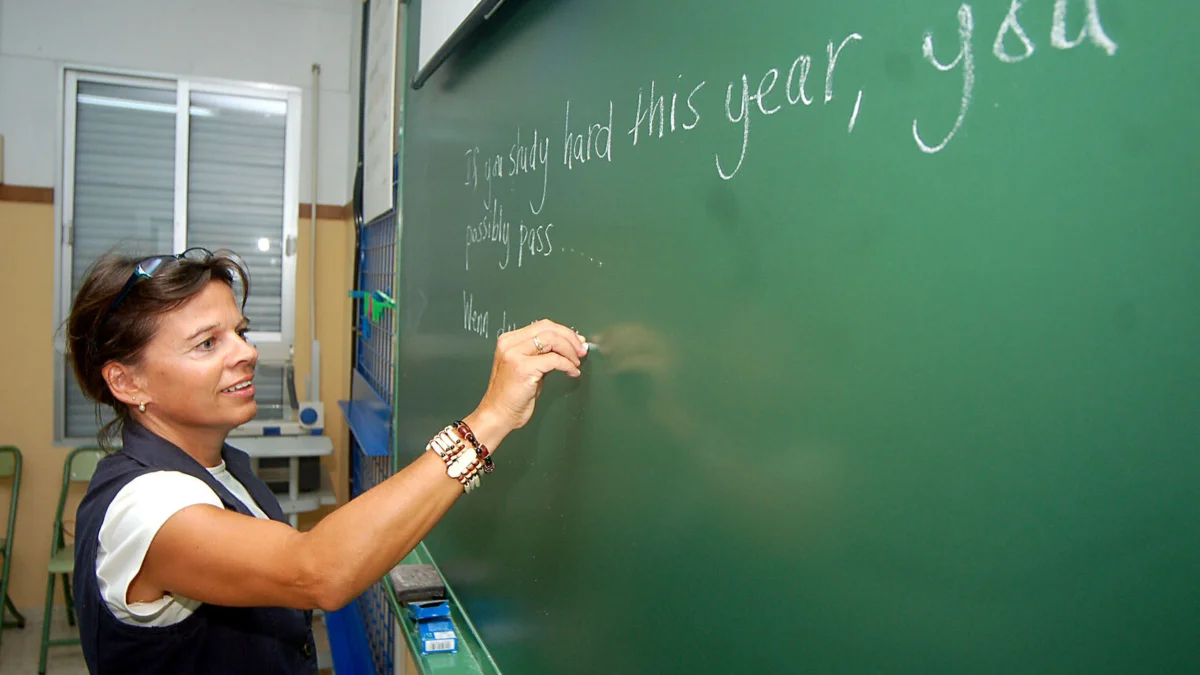 If you study hard this year, you
possibly pass.....
Wenn du